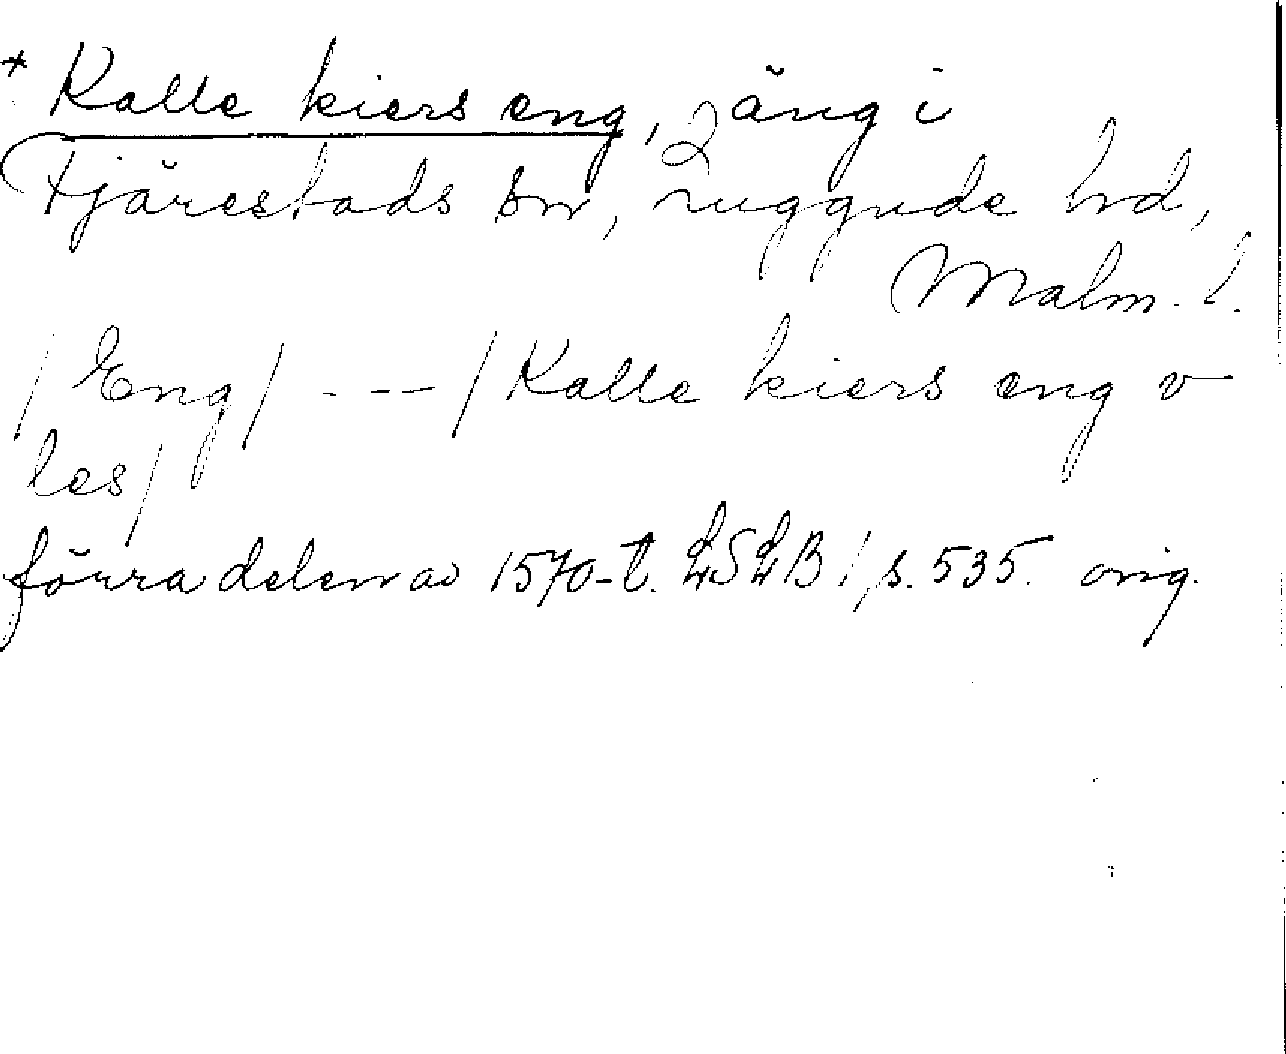 * Kalle kiers eng, äng i
Fjärestads sn, Luggude hd,
Malm. l.
/Eng/ - - - /Kalle kiers eng v
les/
förra delen av 1570-t. LSLB 1, s. 535. orig.